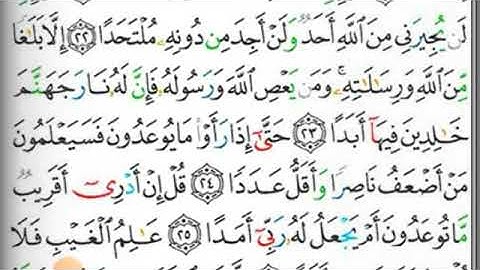 لَن يُجِيرَنِى مِنَ ٱللَّهِ أَحَدٌ وَلَنْ أَجِدَ مِن دُونِهِۦ مُلْتَحَدًا ٢٢ إِلَّا بَلَـٰغًا
مِّنَ ٱللَّهِ وَرِسَـٰلَـٰتِهِۦ ۚ وَمَن يَعْصِ ٱللَّهَ وَرَسُولَهُۥ فَإِنَّ لَهُۥ نَارَ جَهَنَّمَ
خَـٰلِدِينَ فِيهَآ أَبَدًا ٢٣ حَتَّىٰٓ إِذَا رَأَوْا۟ مَا يُوعَدُونَ فَسَيَعْلَمُونَ
مَنْ أَضْعَفُ نَاصِرًا وَأَقَلُّ عَدَدًا ٢٤ قُلْ إِنْ أَدْرِىٓ أَقَرِيبٌ
مَّا تُوعَدُونَ أَمْ يَجْعَلُ لَهُۥ رَبِّىٓ أَمَدًا ٢٥ عَـٰلِمُ ٱلْغَيْبِ فَلَا